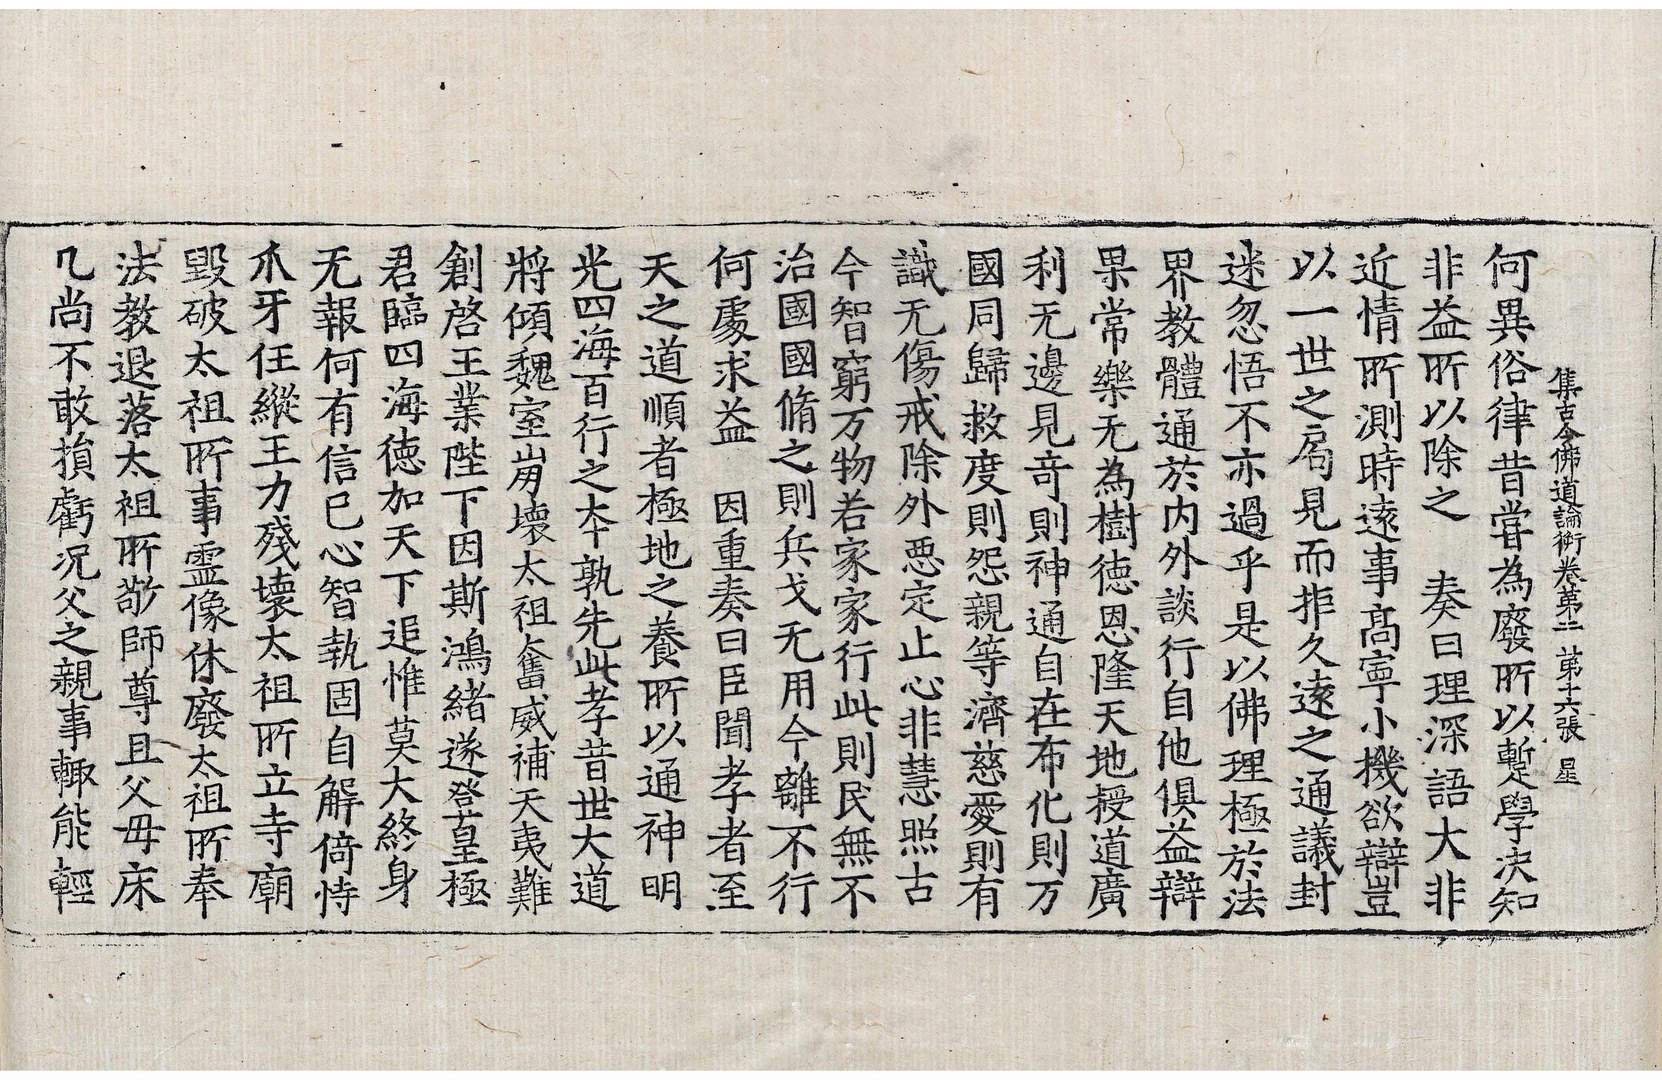 集古今佛道論衡卷第二 第十六張 星
何異俗律昔嘗為廢所以暫學決知
非益所以除之 奏曰理深語大非
近情所測時遠事高寧小機欲辯豈
以一世之局見而拒久遠之通議封
迷忽悟不亦過乎是以佛理極於法
界教體通於内外談行自他俱益辯
果常樂无為樹德恩隆天地授道廣
利无邊見竒則神通自在布化則万
國同歸救度則怨親等濟慈愛則有
識无傷戒除外惡定止心非慧照古
今智窮万物若家家行此則民無不
治國國脩之則兵戈无用今雖不行
何處求益 因重奏曰臣聞孝者至
天之道順者極地之養所以通神明
光四海百行之本孰先此孝昔世大道
將傾魏室崩壞太祖奮威補天夷難
創啓王業陛下因斯鴻緒遂登皇極
君臨四海德加天下追惟莫大終身
无報何有信已心智執固自解倚恃
爪牙任縱王力殘壞太祖所立寺廟
毀破太祖所事靈像休廢太祖所奉
法教退落太祖所敬師尊且父母床
几尚不敢損虧況父之親事輙能輕